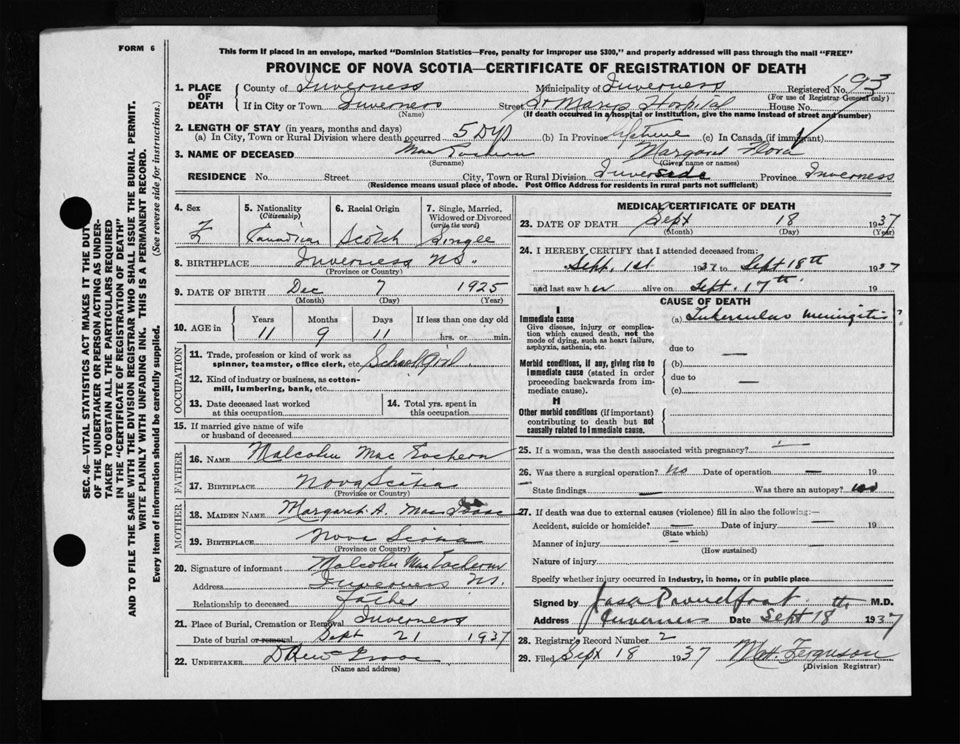 FORM 6
This form if placed in an envelope, marked "Dominion Statistics—Free, penalty for improper use $300," and properly addressed will pass through the mail "FREE"
PROVINCE OF NOVA SCOTIA—CERTIFICATE OF REGISTRATION OF DEATH
SEC. 46—VITAL STATISTICS ACT MAKES IT THE DUTY
OF THE UNDERTAKER OR PERSON ACTING AS UNDER-
TAKER TO OBTAIN ALL THE PARTICULARS REQUIRED
IN THE "CERTIFICATE OF REGISTRATION OF DEATH"
AND TO FILE THE SAME WITH THE DIVISION REGISTRAR WHO SHALL ISSUE THE BURIAL PERMIT.
WRITE PLAINLY WITH UNFADING INK. THIS IS A PERMANENT RECORD.
Every item of information should be carefully supplied. (See reverse side for instructions.)
1. PLACE OF DEATH
County of Inverness Municipality of Inverness Registered No. 193
(For use of Registrar General only)
If in City or Town Inverness Street St Marys Hospital House No.
(Name) (If death occurred in a hospital or institution, give the name instead of street and number)
2. LENGTH OF STAY (in years, months and days)
(a) In City, Town or Rural Division where death occurred 5 Dys (b) In Province Native (c) In Canada (if immigrant)
3. NAME OF DECEASED Margaret Flora
(Surname) (Given name or names)
RESIDENCE No. Street City, Town or Rural Division Province Inverness
(Residence means usual place of abode. Post Office Address for residents in rural parts not sufficient)
4. Sex F
5. Nationality (Citizenship) Canadian
6. Racial Origin Scotch
7. Single, Married, Widowed or Divorced (write the word) Single
8. BIRTHPLACE Inverness NS.
(Province or Country)
9. DATE OF BIRTH Dec 7 1925
(Month) (Day) (Year)
10. AGE in Years Months Days If less than one day old
11 9 11 hrs. or min.
OCCUPATION
11. Trade, profession or kind of work as spinner, teamster, office clerk, etc. School Girl
12. Kind of industry or business, as cotton-mill, lumbering, bank, etc.
13. Date deceased last worked at this occupation
14. Total yrs. spent in this occupation
15. If married give name of wife or husband of deceased
FATHER
16. NAME Malcolm Mac Eachern
17. BIRTHPLACE Nova Scotia
(Province or Country)
MOTHER
18. MAIDEN NAME Margaret A. Mac Isaac
19. BIRTHPLACE Nova Scotia
(Province or Country)
20. Signature of informant Malcolm MacEachern
Address Inverness NS.
Relationship to deceased Father
21. Place of Burial, Cremation or Removal Inverness
Date of burial or removal Sept 21 1937
22. UNDERTAKER
(Name and address)
MEDICAL CERTIFICATE OF DEATH
23. DATE OF DEATH Sept 18 1937
(Month) (Day) (Year)
24. I HEREBY CERTIFY that I attended deceased from:
Sept. 1st 1937 to Sept 18th 1937
and last saw her alive on Sept. 17th 19
CAUSE OF DEATH
I
Immediate cause (a) Tubercular meningitis?
Give disease, injury or complication which caused death, not the mode of dying, such as heart failure, asphyxia, asthenia, etc.
due to —
Morbid conditions, if any, giving rise to immediate cause (stated in order proceeding backwards from immediate cause).
(b)
due to —
(c)
II
Other morbid conditions (if important) contributing to death but not causally related to immediate cause.
25. If a woman, was the death associated with pregnancy? —
26. Was there a surgical operation? No Date of operation — 19
State findings — Was there an autopsy? no
27. If death was due to external causes (violence) fill in also the following:—
Accident, suicide or homicide? — Date of injury — 19
(State which)
Manner of injury —
(How sustained)
Nature of injury
Specify whether injury occurred in industry, in home, or in public place
Signed by Jas. Proudfoot M.D.
Address Inverness Date Sept 18th 1937
28. Registrar's Record Number 2
29. Filed Sept 18 1937 Ferguson
(Division Registrar)